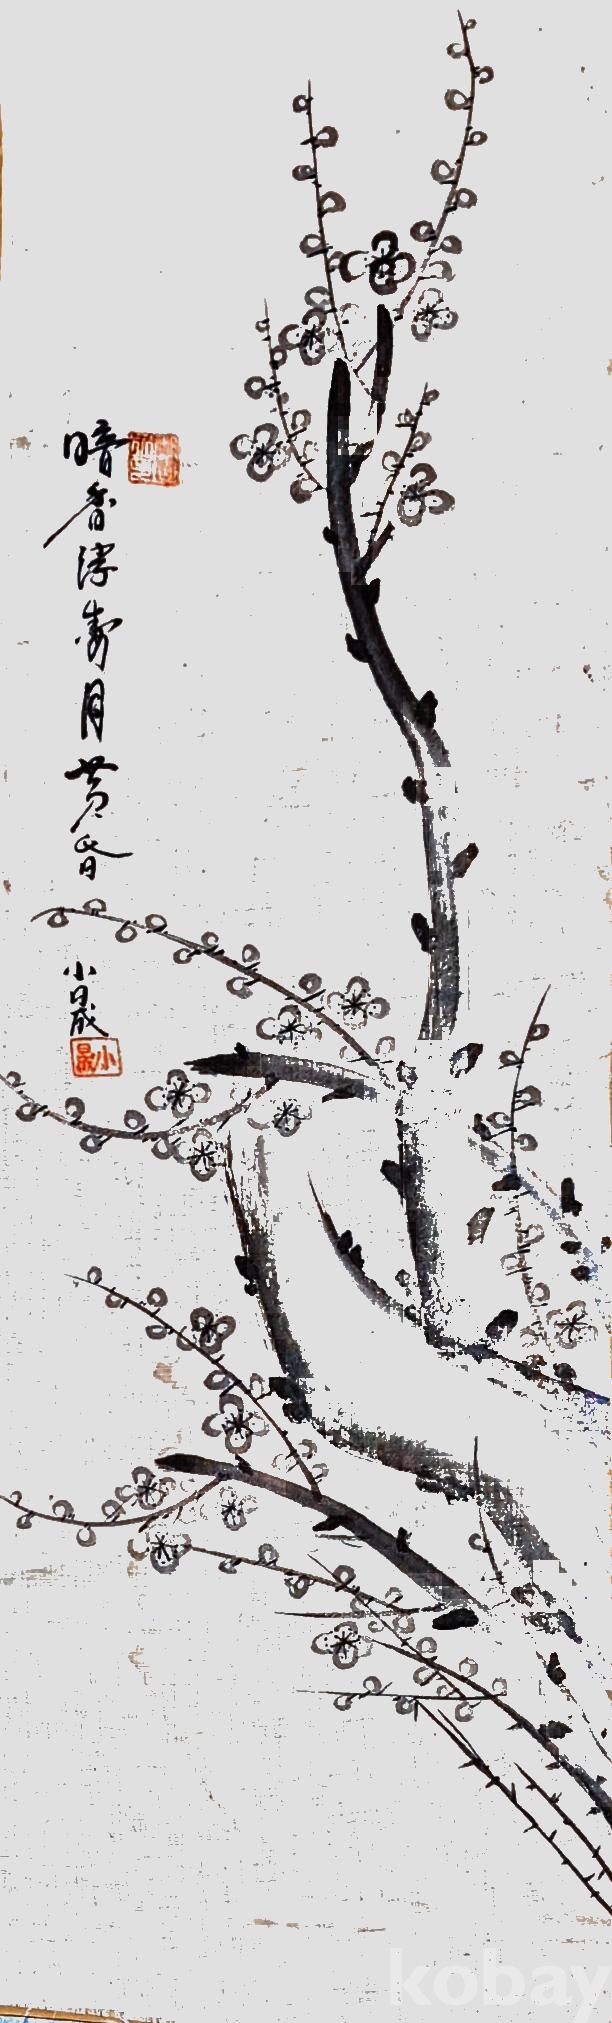 暗香浮動月黄昏
小晟
小晟
kobay